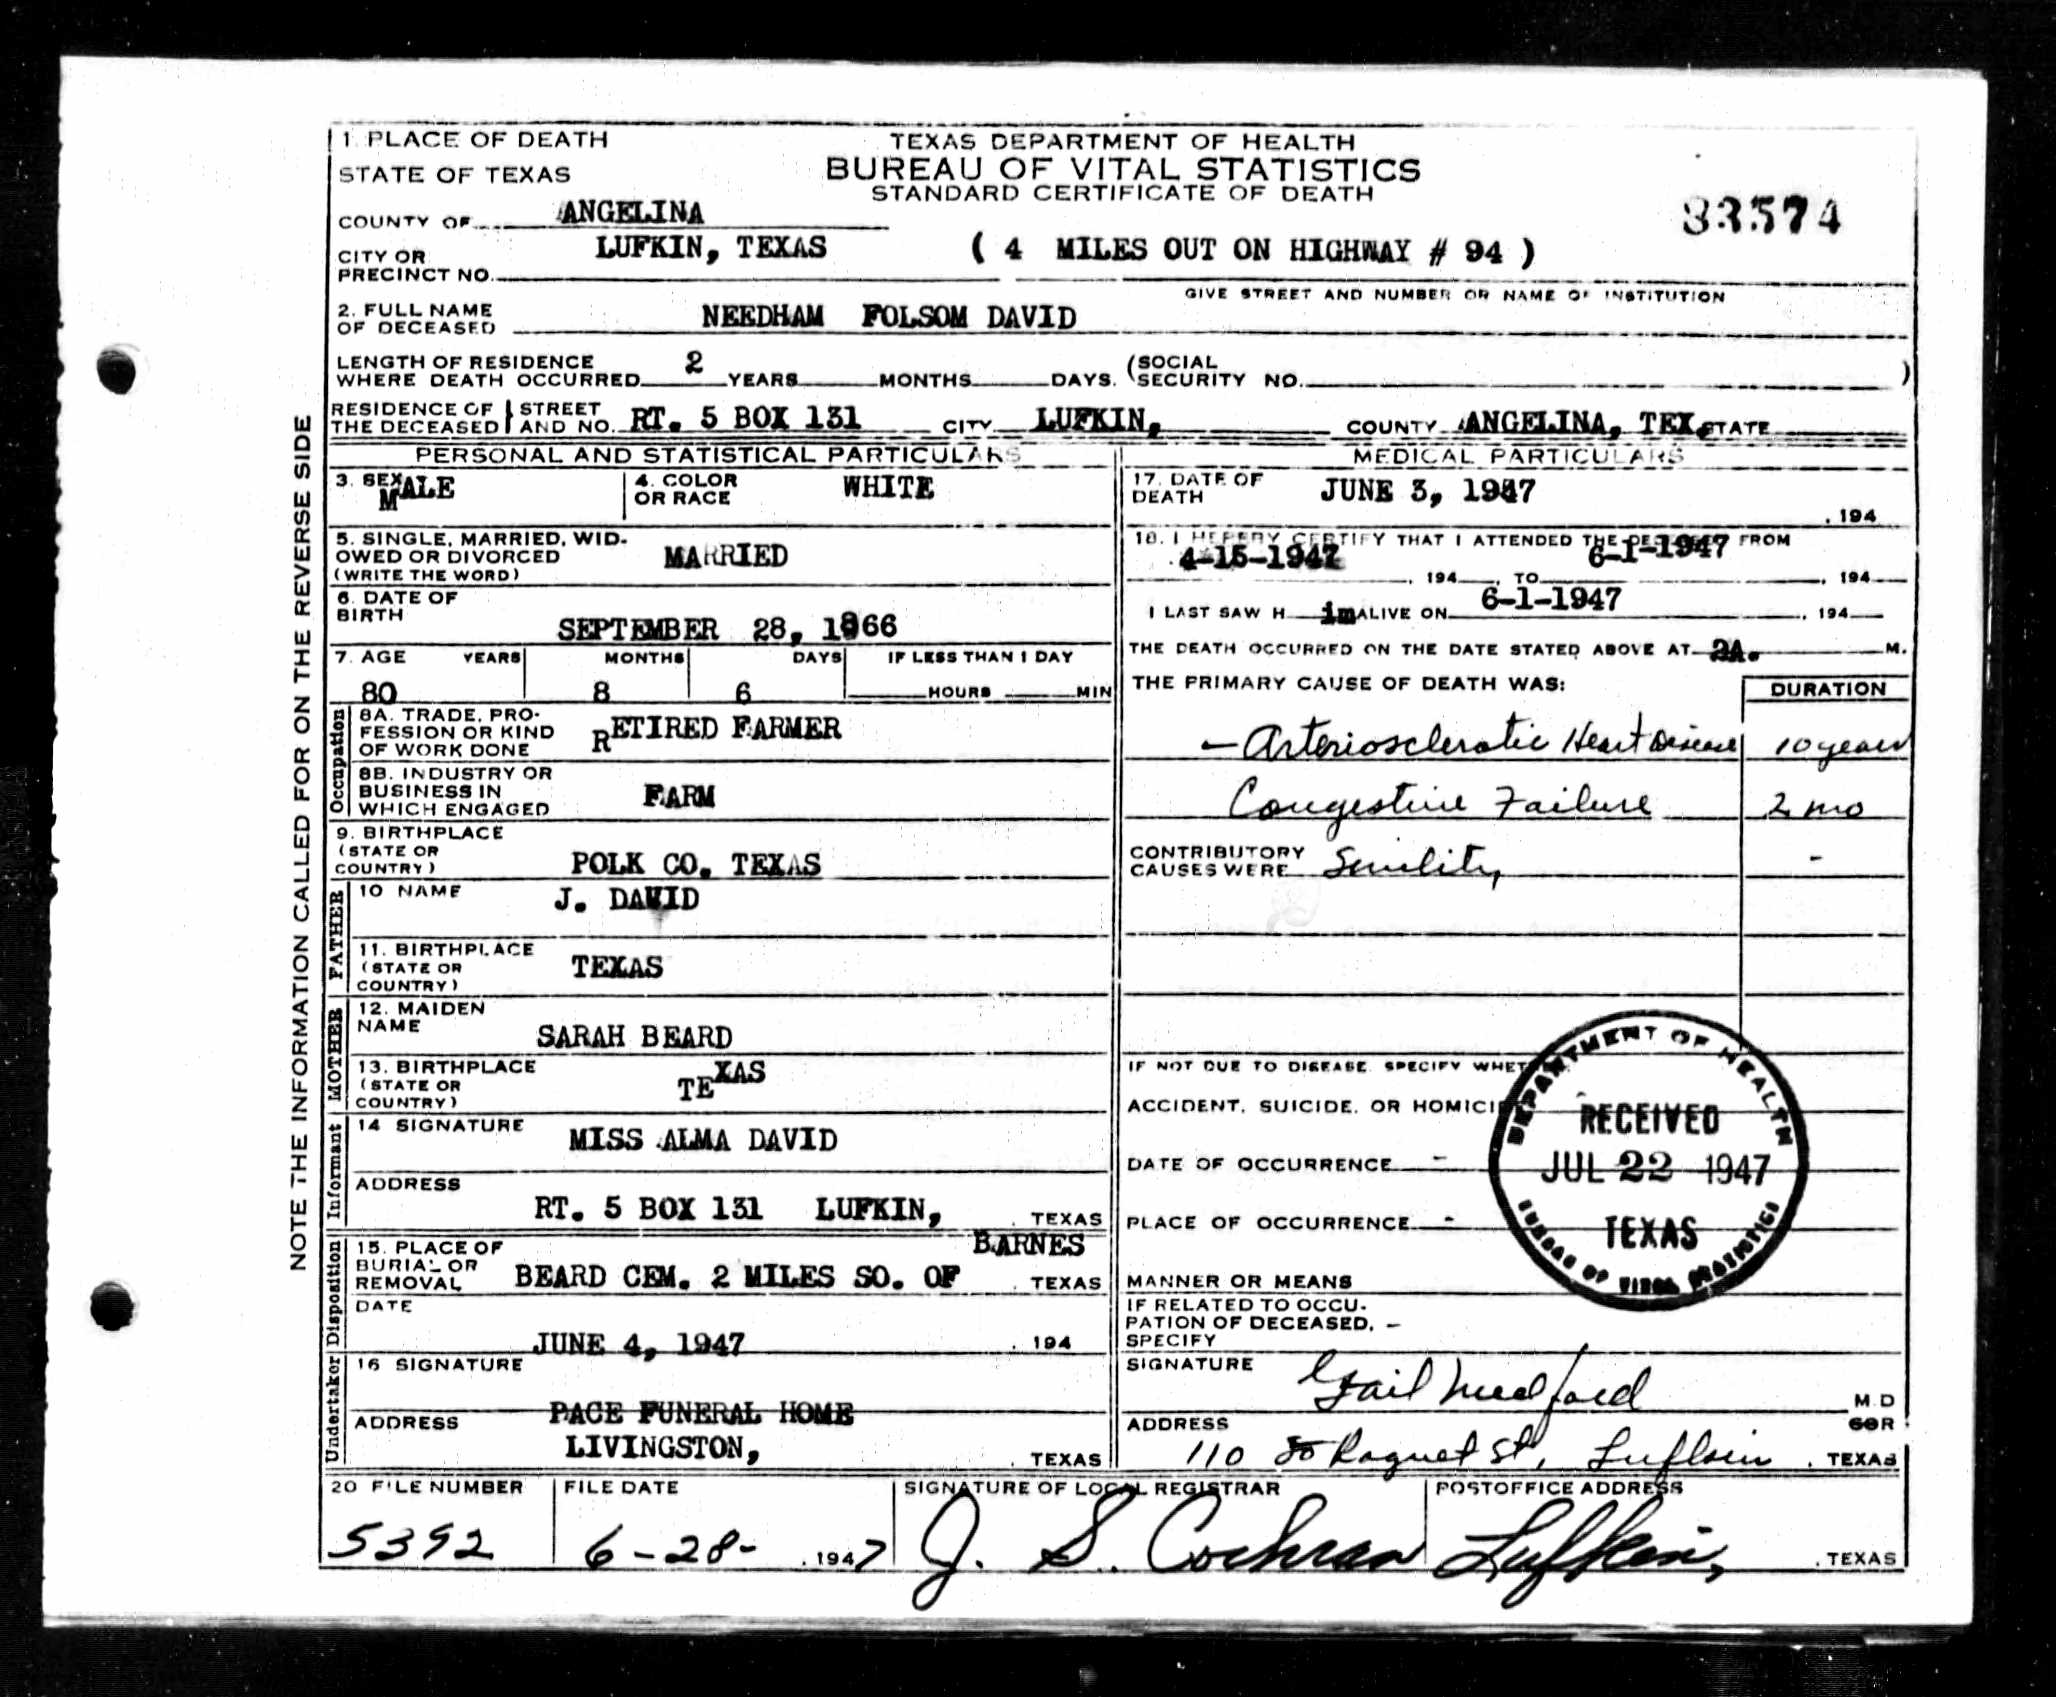 1. PLACE OF DEATH
STATE OF TEXAS
TEXAS DEPARTMENT OF HEALTH
BUREAU OF VITAL STATISTICS
STANDARD CERTIFICATE OF DEATH
COUNTY OF ANGELINA
33574
CITY OR PRECINCT NO. LUFKIN, TEXAS ( 4 MILES OUT ON HIGHWAY # 94 )
GIVE STREET AND NUMBER OR NAME OF INSTITUTION
2. FULL NAME OF DECEASED NEEDHAM FOLSOM DAVID
LENGTH OF RESIDENCE WHERE DEATH OCCURRED 2 YEARS MONTHS DAYS. (SOCIAL SECURITY NO. )
RESIDENCE OF THE DECEASED STREET AND NO. RT. 5 BOX 131 CITY LUFKIN, COUNTY ANGELINA, TEX. STATE
NOTE THE INFORMATION CALLED FOR ON THE REVERSE SIDE
PERSONAL AND STATISTICAL PARTICULARS
3. SEX MALE
4. COLOR OR RACE WHITE
5. SINGLE, MARRIED, WIDOWED OR DIVORCED (WRITE THE WORD) MARRIED
6. DATE OF BIRTH SEPTEMBER 28, 1866
7. AGE YEARS MONTHS DAYS IF LESS THAN 1 DAY
80 8 6 HOURS MIN
Occupation
8A. TRADE, PROFESSION OR KIND OF WORK DONE RETIRED FARMER
8B. INDUSTRY OR BUSINESS IN WHICH ENGAGED FARM
9. BIRTHPLACE (STATE OR COUNTRY) POLK CO. TEXAS
FATHER
10 NAME J. DAVID
11. BIRTHPLACE (STATE OR COUNTRY) TEXAS
MOTHER
12. MAIDEN NAME SARAH BEARD
13. BIRTHPLACE (STATE OR COUNTRY) TEXAS
Informant
14 SIGNATURE MISS ALMA DAVID
ADDRESS RT. 5 BOX 131 LUFKIN, TEXAS
Disposition
15. PLACE OF BURIAL OR REMOVAL BEARD CEM. 2 MILES SO. OF BARNES TEXAS
DATE JUNE 4, 1947 , 194
Undertaker
16 SIGNATURE PACE FUNERAL HOME
ADDRESS LIVINGSTON, TEXAS
MEDICAL PARTICULARS
17. DATE OF DEATH JUNE 3, 1947 , 194
18. I HEREBY CERTIFY THAT I ATTENDED THE DECEASED FROM
4-15-1947 , 194 , TO 6-1-1947 , 194
I LAST SAW H im ALIVE ON 6-1-1947 , 194
THE DEATH OCCURRED ON THE DATE STATED ABOVE AT 2A. M.
THE PRIMARY CAUSE OF DEATH WAS: DURATION
- Arteriosclerotic Heart Disease 10 years
Congestive Failure 2 mo
CONTRIBUTORY CAUSES WERE Senility -
IF NOT DUE TO DISEASE, SPECIFY WHET
ACCIDENT, SUICIDE, OR HOMICI
DATE OF OCCURRENCE -
PLACE OF OCCURRENCE -
MANNER OR MEANS
DEPARTMENT OF HEALTH
RECEIVED
JUL 22 1947
TEXAS
BUREAU OF VITAL STATISTICS
IF RELATED TO OCCUPATION OF DECEASED, - SPECIFY
SIGNATURE Gail Medford M D
ADDRESS 110 So Raguet St, Lufkin , TEXAS
20 FILE NUMBER FILE DATE SIGNATURE OF LOCAL REGISTRAR POSTOFFICE ADDRESS
5392 6-28- , 1947 J. S. Cochran Lufkin, , TEXAS